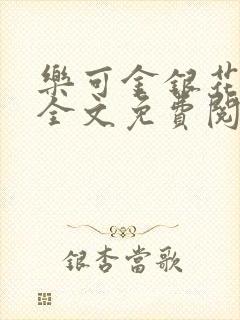 樂可金銀花
全文免費閱
銀杏當歌